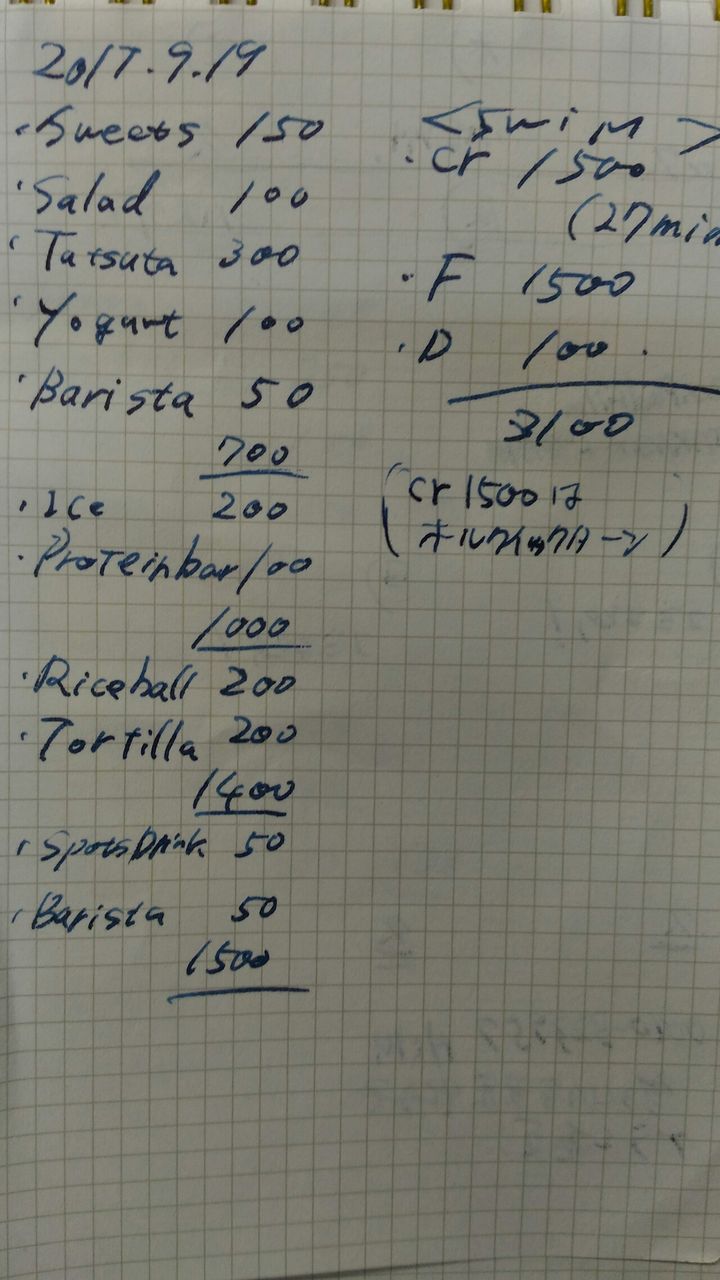 2017.9.19
・Sweets 150
・Salad 100
・Tatsuta 300
・Yogurt 100
・Barista 50
700
・Ice 200
・Proteinbar 100
1000
・Riceball 200
・Tortilla 200
1400
・SpotsDrink 50
・Barista 50
1500
<Swim>
・Cr 1500
(27min
・F 1500
・D 100.
3100
(Cr 1500は